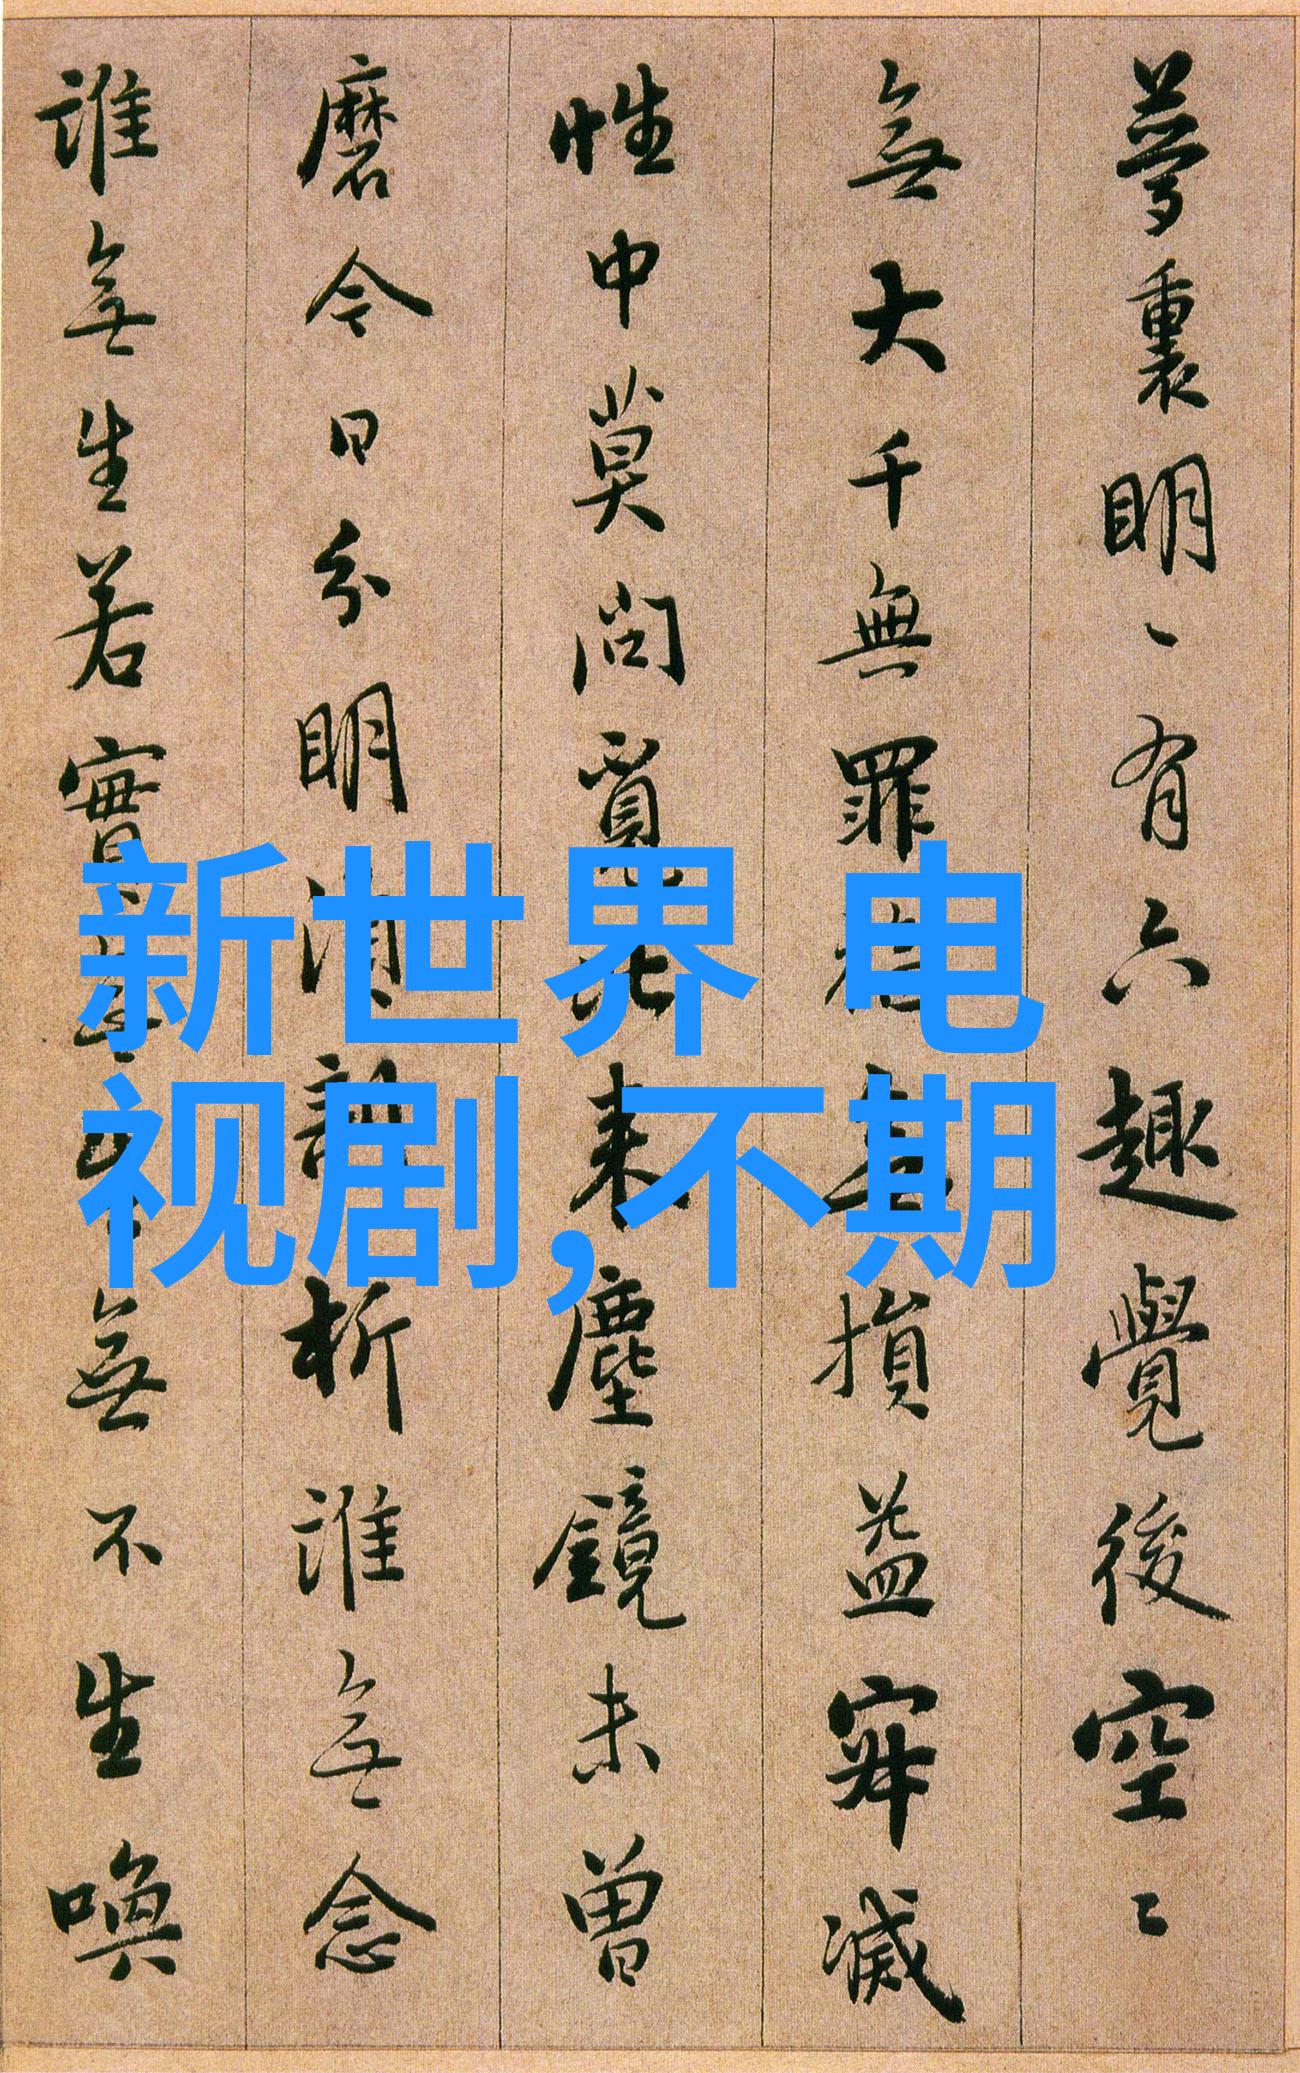 夢裏明〻有六趣覺後空〻
無大千無罪損益寂滅
性中莫問覓来塵鏡未曾
磨今日分明須析誰無念
誰無生若實無不生喚
新世界 电
视剧,不期